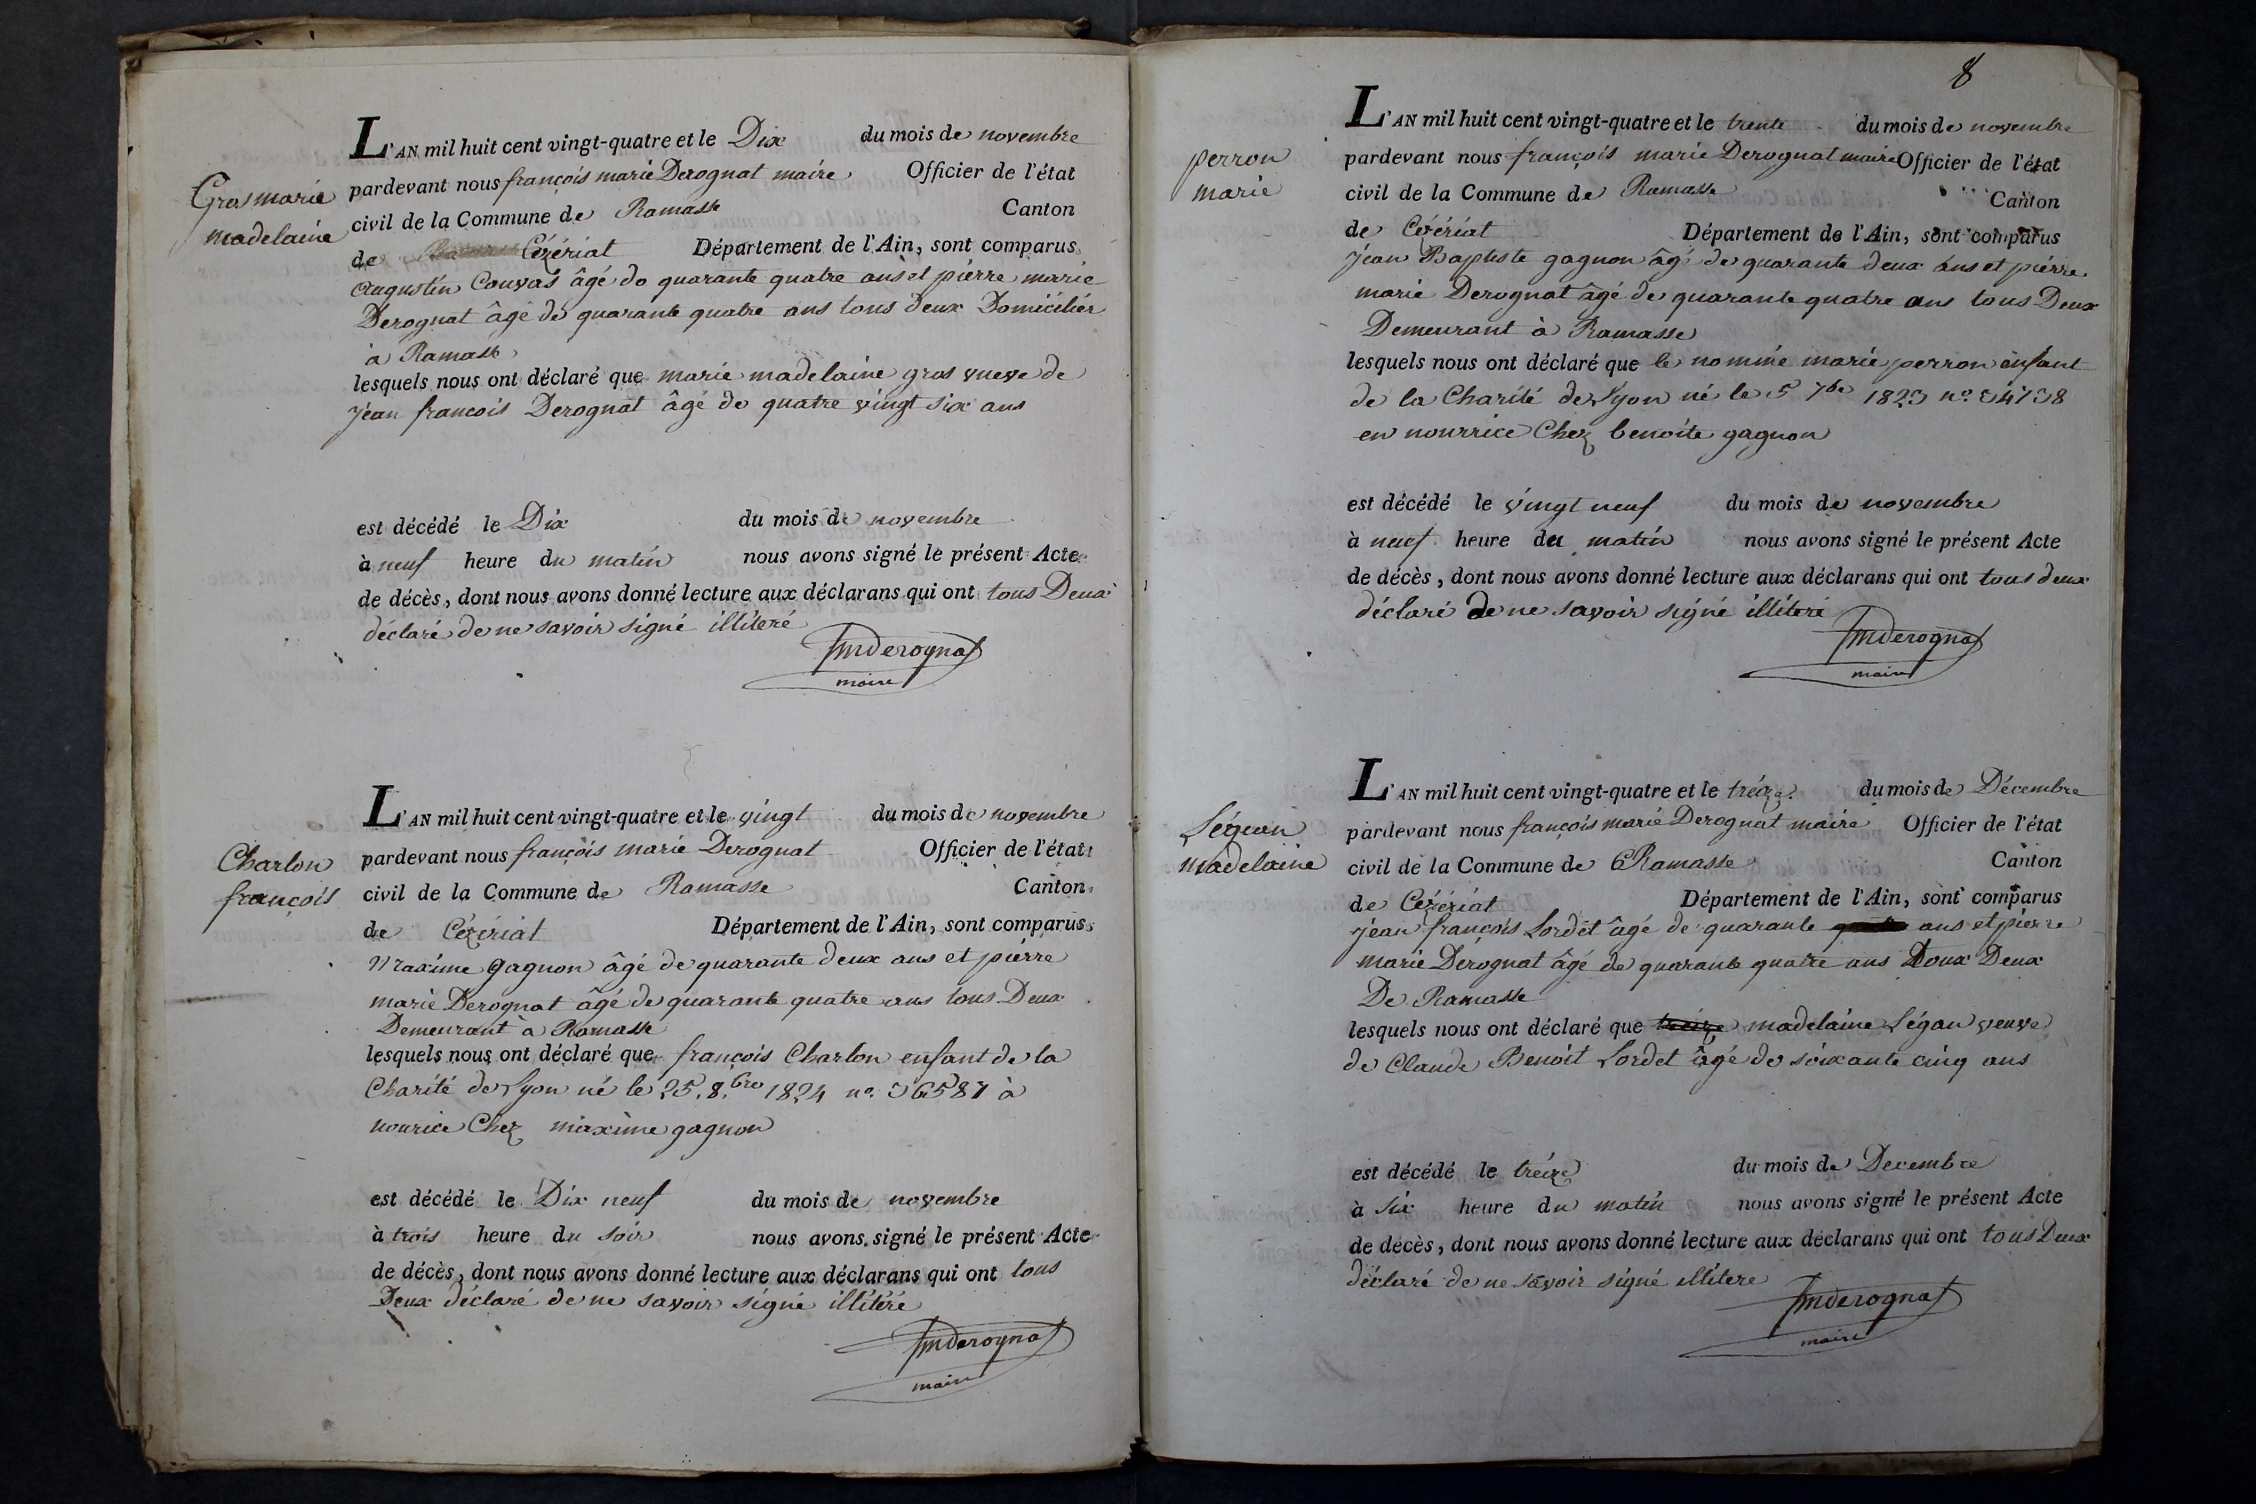 Gros marie
madelaine
L'AN mil huit cent vingt-quatre et le Dix du mois de novembre
pardevant nous françois marie Derognat maire Officier de l'état
civil de la Commune de Ramasse Canton
de Cézériat Département de l'Ain, sont comparus
augustin Convas âgé de quarante quatre ans et pierre marie
Derognat âgé de quarante quatre ans tous deux Domicilier
à Ramasse
lesquels nous ont déclaré que marie madelaine gros vueve de
jean francois Derognat âgé de quatre vingt six ans
est décédé le Dix du mois de novembre
à neuf heure du matin nous avons signé le présent Acte
de décès, dont nous avons donné lecture aux déclarans qui ont tous Deux
déclaré de ne savoir signé illiteré
fmderognat
maire
Charlon
françois
L'AN mil huit cent vingt-quatre et le vingt du mois de novembre
pardevant nous françois marie Derognat Officier de l'état
civil de la Commune de Ramasse Canton
de Cézériat Département de l'Ain, sont comparus
maxime gagnon âgé de quarante deux ans et pierre
marie Derognat âgé de quarante quatre ans tous Deux
Demeurant à Ramasse
lesquels nous ont déclaré que françois Charlon enfant de la
Charité de Lyon né le 25. 8.bre 1824 no. 36587 à
nourice Chez maxime gagnon
est décédé le Dix neuf du mois de novembre
à trois heure du soir nous avons signé le présent Acte
de décès, dont nous avons donné lecture aux déclarans qui ont tous
Deux déclaré de ne savoir signé illitéré
fmderognat
maire
8
perron
marie
L'AN mil huit cent vingt-quatre et le trente du mois de novembre
pardevant nous françois marie Derognat maire Officier de l'état
civil de la Commune de Ramasse Canton
de Cézériat Département de l'Ain, sont comparus
jean Baptiste gagnon âgé de quarante deux ans et pierre
marie Derognat âgé de quarante quatre ans tous Deux
Demeurant à Ramasse
lesquels nous ont déclaré que le nommé marie perron enfant
de la Charité de Lyon né le 5 7bre 1823 no. 34738
en nourrice Chez benoite gagnon
est décédé le vingt neuf du mois de novembre
à neuf heure du matin nous avons signé le présent Acte
de décès, dont nous avons donné lecture aux déclarans qui ont tous deux
déclaré de ne savoir signé illiteré
fmderognat
maire
Légean
madelaine
L'AN mil huit cent vingt-quatre et le tréize du mois de Décembre
pardevant nous françois marie Derognat maire Officier de l'état
civil de la Commune de Ramasse Canton
de Cézériat Département de l'Ain, sont comparus
jean françois Lordet âgé de quarante ans et pierre
marie Derognat âgé de quarante quatre ans Toux Deux
De Ramasse
lesquels nous ont déclaré que treize madelaine Légau veuve
de Claude Benoit Lordet âgé de soixante cinq ans
est décédé le tréize du mois de Decembre
à six heure du matin nous avons signé le présent Acte
de décès, dont nous avons donné lecture aux déclarans qui ont tous Deux
déclaré de ne savoir signé illitere
fmderognat
maire